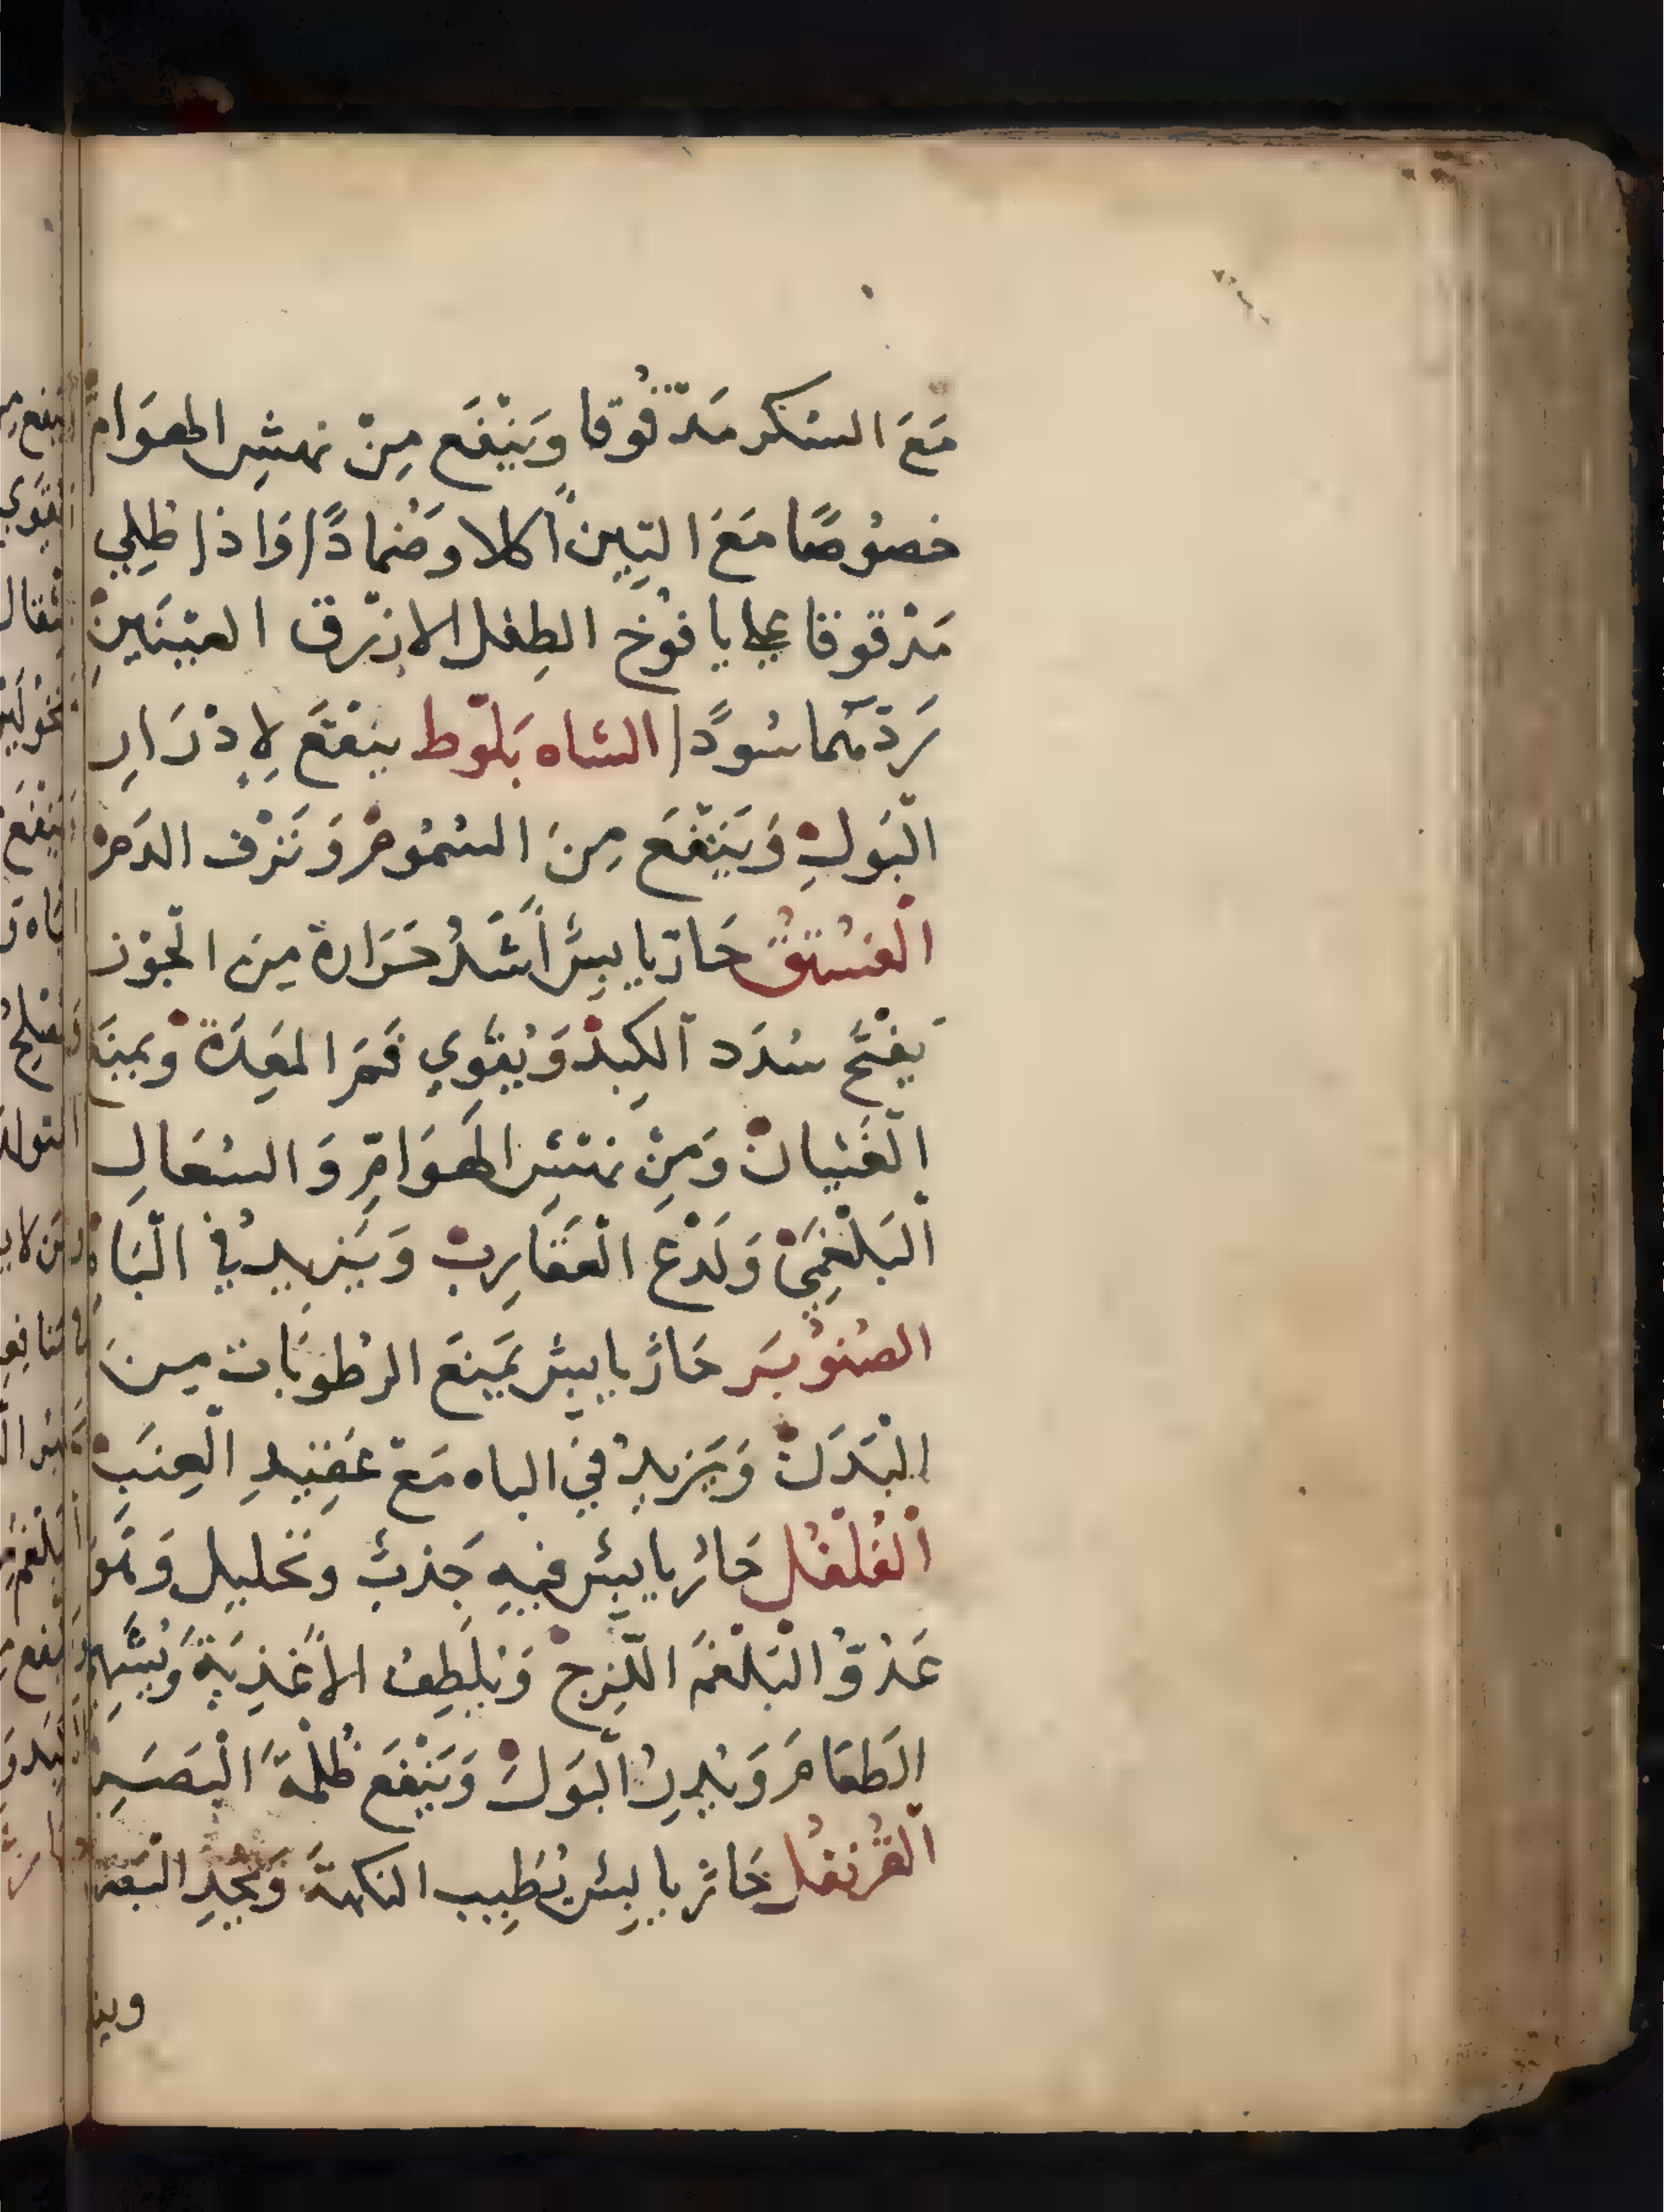 مَعَ السكر مَدْقُوقا وَيَنْفَع مِنْ نهشِ الهوَام
خصُوصًا مَعَ التِين أكلا وضمادًا وَاذا طلِي
مَدْقوقا على يا فوْخ الطِفل الازرق العيْنَينِ
رَدّهما سُودًا الشاه بَلوّط ينفَع لِإدْرَارِ
البَولِ وَيَنفَع مِنَ السُمُومْ وَنَزْف الدَمْ
الفُسْتقُ حَار يابِس أشَدُ حَرَارة مِنَ الجوْز
يَفْتَح سُدَد الكِبدْ وَيُقَوي فَمَ المعِدَة ويمنَع
الغَثيانْ وَمِنْ نهشِ الهَوَامِّ وَالسُعَالِ
البَلْغَمِي وَلَدْغ العَقارِبْ وَيَزِيد في البَاه
الصُنوُبَر حَار يابِس يمنَع الرطوبَات مِنَ
البَدَنْ وَيَزيدُ في الباه مَعْ عَقِيدِ العِنَبْ
الفُلفُل حَار يابِس فيهِ جَذبٌ وتحليل وَهَو
عَدُوُّ البَلغَم اللّزِجْ وَيُلَطِفُ الاغذِيَة وَيُشَهِي
الطَعَامَ وَيُدِرُ البَولْ وَيَنْفَع ظُلْمَة البَصَرِ
القُرُنفُل حَار يابِس يُطَيِب النكهَة وَيُحِدِ البَصَر
وين